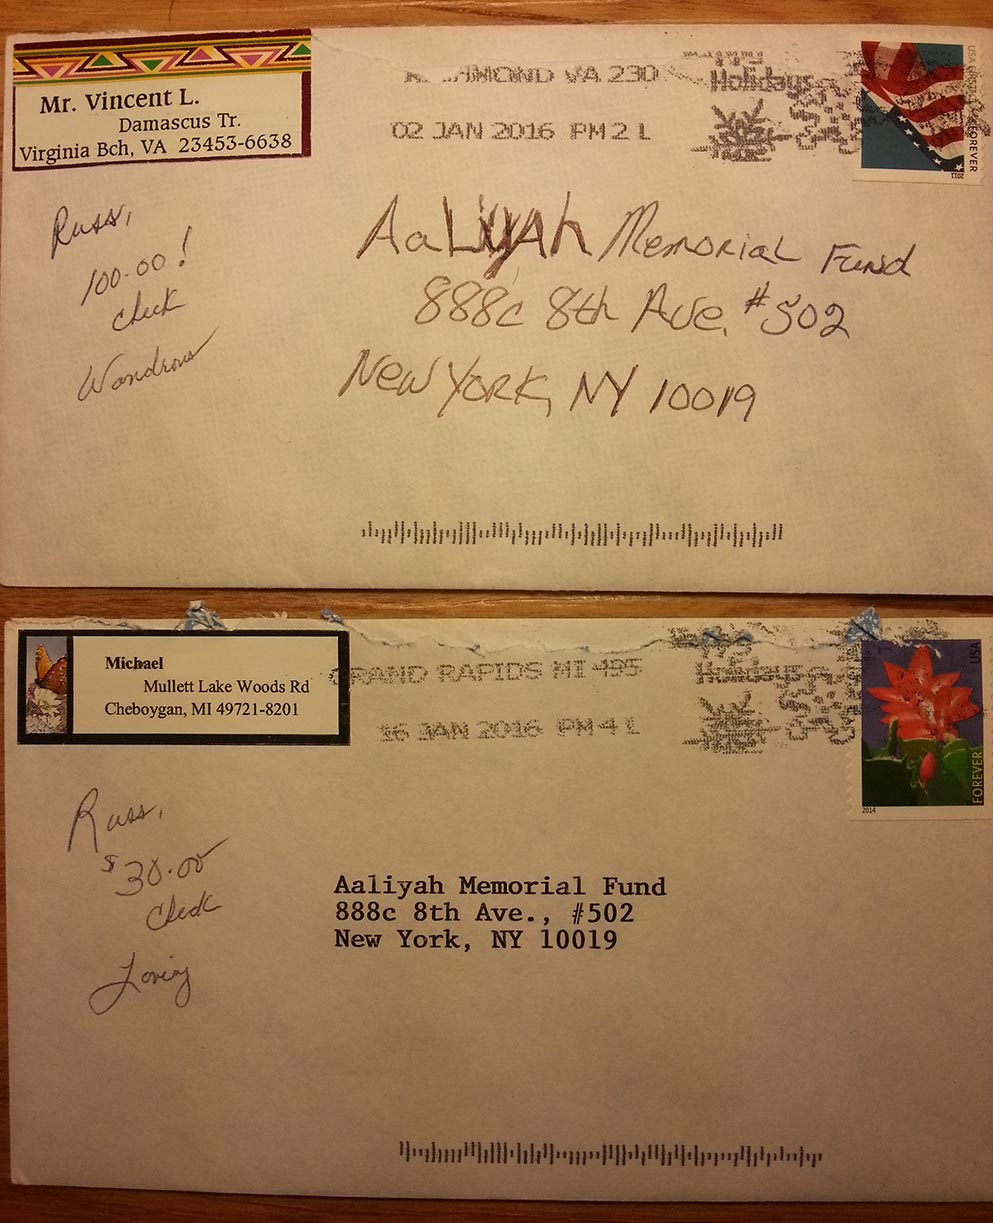 Mr. Vincent L.
Damascus Tr.
Virginia Bch, VA 23453-6638
RICHMOND VA 230
02 JAN 2016 PM 2 L
Holidays
USA FIRST-CLASS FOREVER
2011
Russ,
100.00!
check
Wondrous
Aaliyah Memorial Fund
888c 8th Ave. #502
New York, NY 10019
Michael
Mullett Lake Woods Rd
Cheboygan, MI 49721-8201
GRAND RAPIDS MI 495
16 JAN 2016 PM 4 L
Holidays
USA
FOREVER
2014
Russ,
$30.00
Check
Loving
Aaliyah Memorial Fund
888c 8th Ave., #502
New York, NY 10019